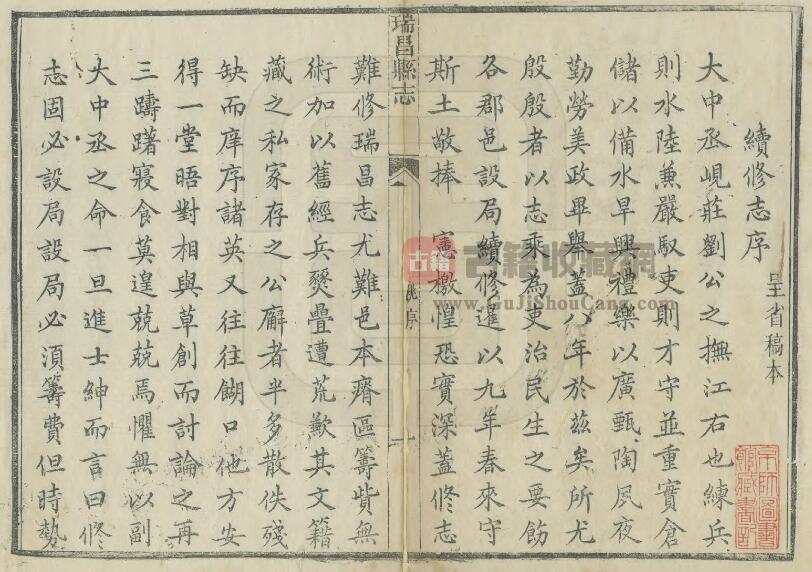 續修志序
呈省稿本
大中丞峴莊劉公之撫江右也練兵
則水陸兼嚴馭吏則才守並重實倉
儲以備水旱興禮樂以廣甄陶夙夜
勤勞美政畢舉蓋八年於茲矣所尤
殷殷者以志乘為吏治民生之要飭
各郡邑設局續修暹以九年春來守
斯土敬捧 憲檄惶恐實深蓋修志
瑞昌縣志
序
一
難修瑞昌志尤難邑本瘠區籌貲無
術加以舊經兵燹疊遭荒歉其文籍
藏之私家存之公廨者半多散佚殘
缺而庠序諸英又往往餬口他方安
得一堂晤對相與草創而討論之再
三躊躇寢食莫遑兢兢焉懼無以副
大中丞之命一旦進士紳而言曰修
志固必設局設局必須籌費但時勢
古籍
古籍收藏網
www.GuJiShouCang.com